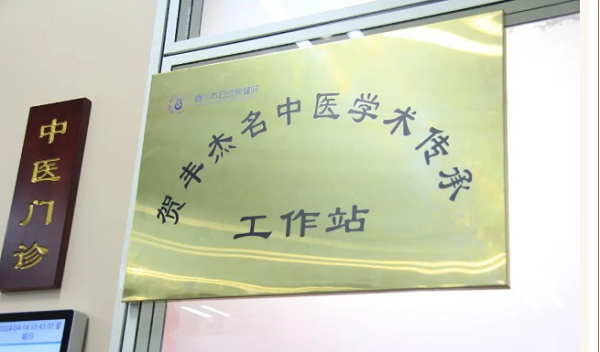 中医门诊
市妇幼保健院
贺丰杰名中医学术传承
工作站
2024-04-14 10:43:30 星
期日